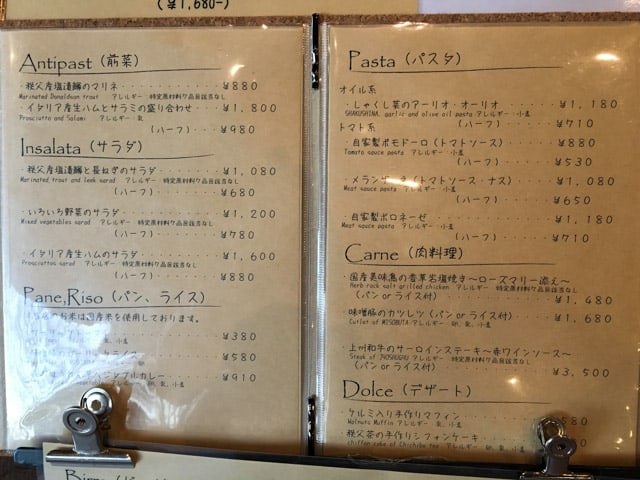 (¥1,680-)
Antipast (前菜)
・秩父産塩漬鱒のマリネ・・・¥880
Marinated Donaldson trout アレルギー 特定原材料7品目該当なし
・イタリア産生ハムとサラミの盛り合わせ・・・¥1,800
Prosciutto and Salami アレルギー・乳
(ハーフ)・・・¥980
Insalata (サラダ)
・秩父産塩漬鱒と長ねぎのサラダ・・・¥1,080
Marinated trout and leek sarad アレルギー 特定原材料7品目該当なし
(ハーフ)・・・¥680
・いろいろ野菜のサラダ・・・¥1,200
Mixed vegetables sarad アレルギー 特定原材料7品目該当なし
(ハーフ)・・・¥780
・イタリア産生ハムのサラダ・・・¥1,600
Prosciuttos sarad アレルギー 特定原材料7品目該当なし
(ハーフ)・・・¥880
Pane,Riso (パン、ライス)
お米は国産米を使用しております。
¥380
¥580
カレー・・・¥910
Pasta (パスタ)
オイル系
・しゃくし菜のアーリオ・オーリオ・・・¥1,180
SHAKUSHINA, garlic and olive oil pasta アレルギー・小麦
(ハーフ)・・・¥710
トマト系
・自家製ポモドーロ(トマトソース)・・・¥880
Tomato sauce pasta アレルギー・小麦
(ハーフ)・・・¥530
・メランザーネ(トマトソース・ナス)・・・¥1,080
Meat sauce pasta アレルギー・小麦
(ハーフ)・・・¥650
・自家製ボロネーゼ・・・¥1,180
Meat sauce pasta アレルギー・小麦
(ハーフ)・・・¥710
Carne (肉料理)
・国産美味鶏の香草岩塩焼き〜ローズマリー添え〜
Herb rock salt grilled chicken アレルギー 特定原材料7品目該当なし
(パン or ライス付)・・・¥1,480
・味噌豚のカツレツ(パン or ライス付)・・・¥1,680
Cutlet of MISOBUTA アレルギー 卵、乳、小麦
・上州和牛のサーロインステーキ〜赤ワインソース〜
Steak of JYOSHUGYU アレルギー 特定原材料7品目該当なし
(パン or ライス付)・・・¥3,500
Dolce (デザート)
・クルミ入り手作りマフィン・・・580
Walnuts Muffin アレルギー 卵、乳、小麦
・秩父茶の手作りシフォンケーキ
chiffon cake of Chichibu tea アレルギー 卵、乳、小麦